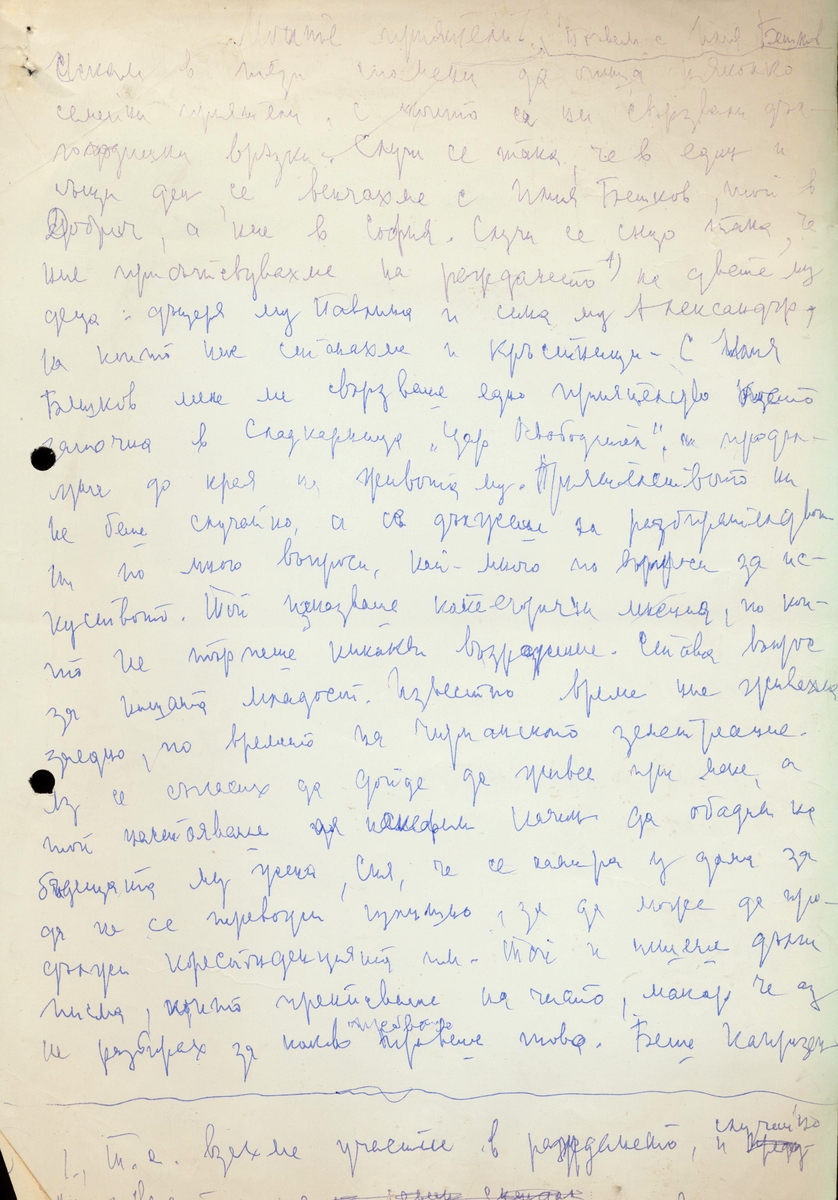 Моите приятели. Почвам с Илия Бешков
Искам в тези спомени да опиша няколко
семейни приятели, с които са ни свързвали дъл-
гогодишни връзки. Случи се така, че в един и
същи ден се венчахме с Илия Бешков, той в
Добрич, а ние в София. Случи се също така, че
ние присъствувахме на раждането 1) на двете му
деца: дъщеря му Павлина и сина му Александър,
на които ние станахме и кръстници. С Илия
Бешков мене ме свързваше едно приятелство което
започна в Сладкарница „Цар Освободител", и продъл-
жи до края на живота му. Приятелството ни
не беше случайно, а се дължеше на разбирателство
ни по много въпроси, най-много по въпроси за из-
куството. Той изказваше категорични мнения, по кои-
то не търпеше никакви възражение. Остава въпрос
за нашата младост. Известно време ние живеехме
заедно, по времето на Чирпанското земетресение.
Аз се съгласих да дойде да живее при мене, а
той настояваше да намерим начин да обадим на
бъдещата му жена, Сия, че се намира у дома за
да не се тревожи излишно, за да може да про-
дължи кореспонденцията им. Той и пишеше дълги
писма, които препис ваше на чисто, макар че аз
не разбирах за какво трябваше това. Беше капризен
1., т. е. взехме участие в раждането, случайно и